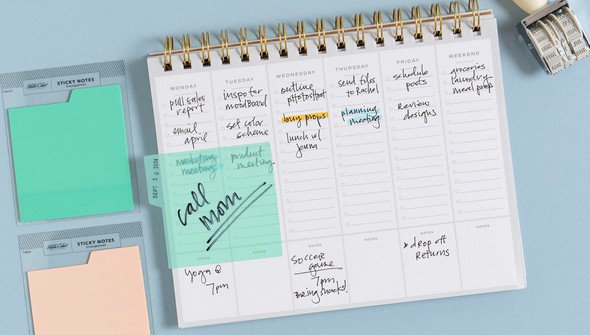 STICKY NOTES
transparent
STICKY NOTES
transparent
MONDAY
pull sales
report
email
april
marketing
meeting
NOTES
Yoga @
7pm
TUESDAY
inspo for
moodboard
set color
scheme
product
meeting
NOTES
WEDNESDAY
outline
photoshoot
buy props
lunch w/
NOTES
Soccer
game
7pm
Bring snacks!
THURSDAY
send files
to Rachel
planning
meeting
NOTES
FRIDAY
schedule
posts
Review
designs
NOTES
drop off
Returns
WEEKEND
groceries
laundry
meal prep
NOTES
SEPT 3 0 2024
call
mom